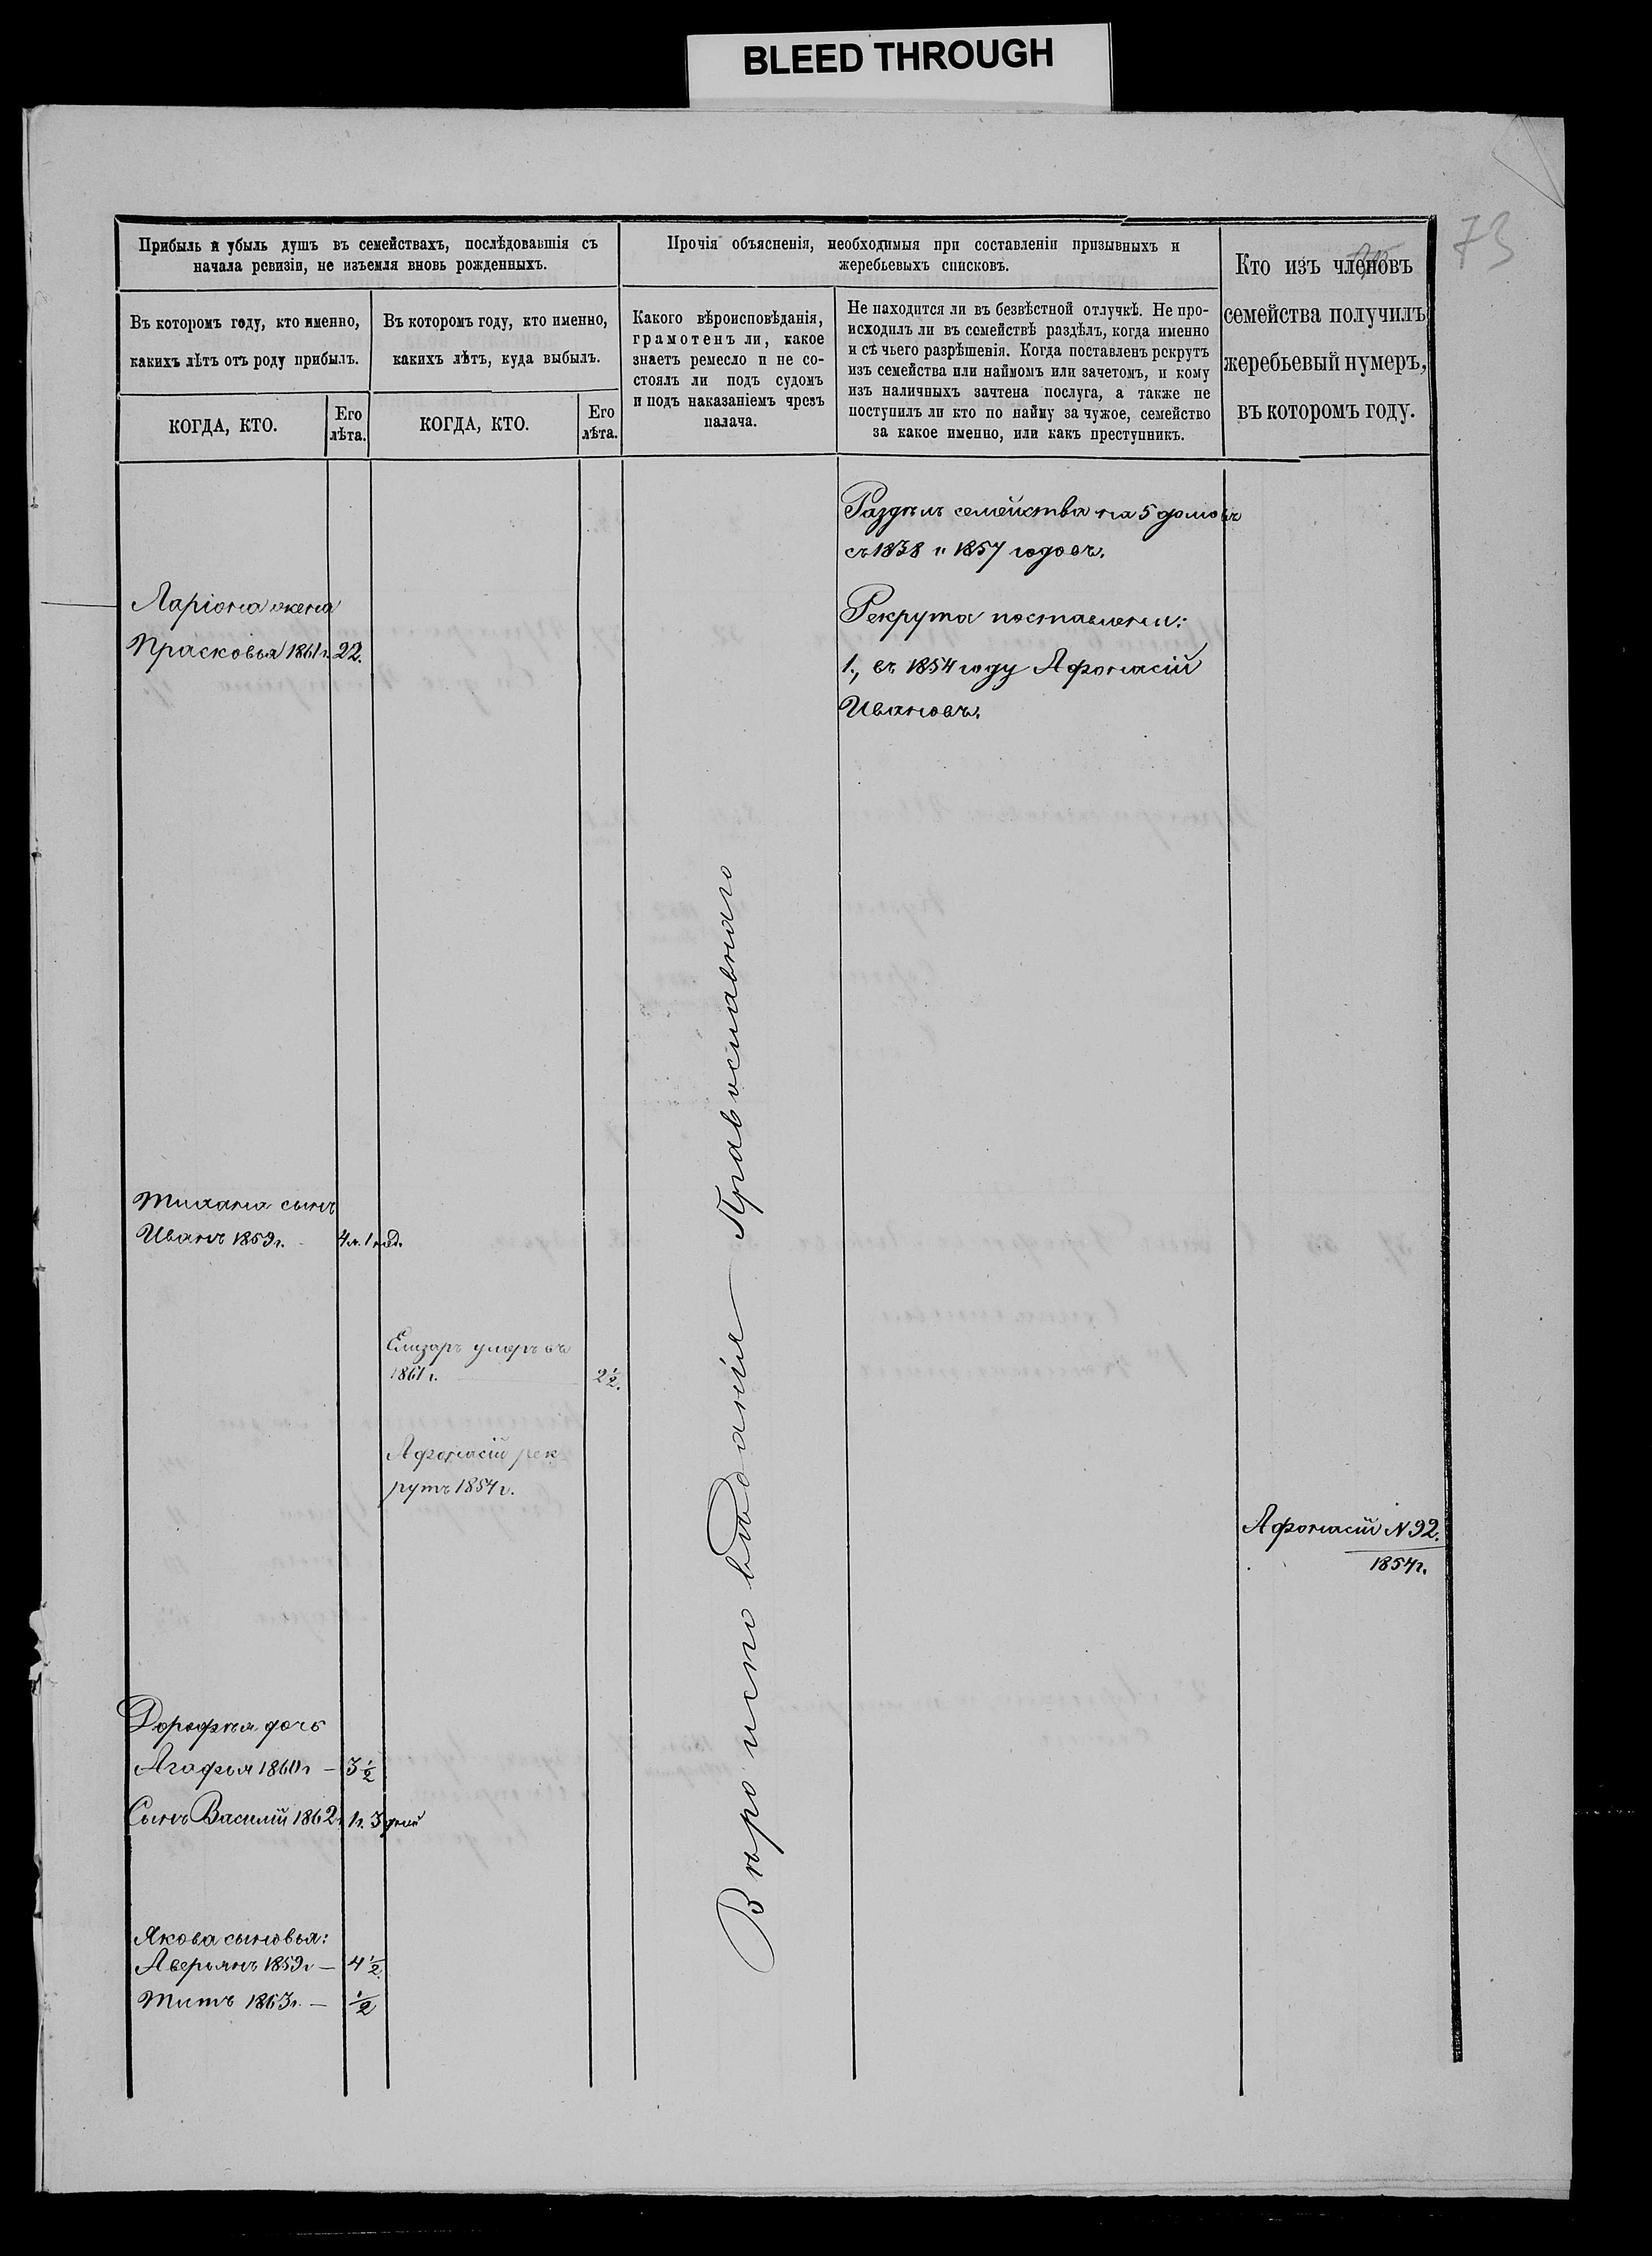 BLEED THROUGH
73
Прибыль и убыль душъ въ семействахъ, послѣдовавшія съ
начала ревизіи, не изъемля вновь рожденныхъ.
Въ которомъ году, кто именно,
какихъ лѣтъ отъ роду прибылъ.
КОГДА, КТО.
Его
лѣта.
Въ которомъ году, кто именно,
какихъ лѣтъ, куда выбылъ.
КОГДА, КТО.
Его
лѣта.
Прочія объясненія, необходимыя при составленіи призывныхъ и
жеребьевыхъ списковъ.
Какого вѣроисповѣданія,
грамотенъ ли, какое
знаетъ ремесло и не со-
стоялъ ли подъ судомъ
и подъ наказаніемъ чрезъ
палача.
Не находится ли въ безвѣстной отлучкѣ. Не про-
исходилъ ли въ семействѣ раздѣлъ, когда именно
и съ чьего разрѣшенія. Когда поставленъ рекрутъ
изъ семейства или наймомъ или зачетомъ, и кому
изъ наличныхъ зачтена послуга, а также не
поступилъ ли кто по найму за чужое, семейство
за какое именно, или какъ преступникъ.
Кто изъ членовъ
семейства получилъ
жеребьевый нумеръ,
въ которомъ году.
Раздѣлъ семейства на 5 домовъ
съ 1838 и 1857 годовъ.
Ларіона жена
Прасковья 1861 г. 22.
Рекрута поставлены:
1., въ 1854 году Афонасій
Ивановъ.
Вѣроисповѣданія Православнаго
сынъ
Иванъ 1859 г. 4 л. 1 мѣс.
Елизаръ умеръ въ
1861 г. 2 1/2.
Афонасій рек
рутъ 1854 г.
Афонасій N 92.
1854 г.
Дорофѣя дочь
Агафья 1860 г. — 3 1/2
Сынъ Василій 1862 г. 1 г. 3 дней
Якова сыновья:
Аверьянъ 1859 г. — 4 1/2.
Титъ 1863 г. — 1/2